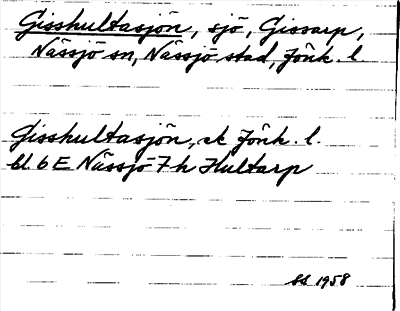 Gisshultasjön, sjö, Gissarp,
Nässjö sn, Nässjö stad, Jönk. l.
Gisshultasjön, ek Jönk. l.
bl. 6 E Nässjö 7 h Hultarp
1958